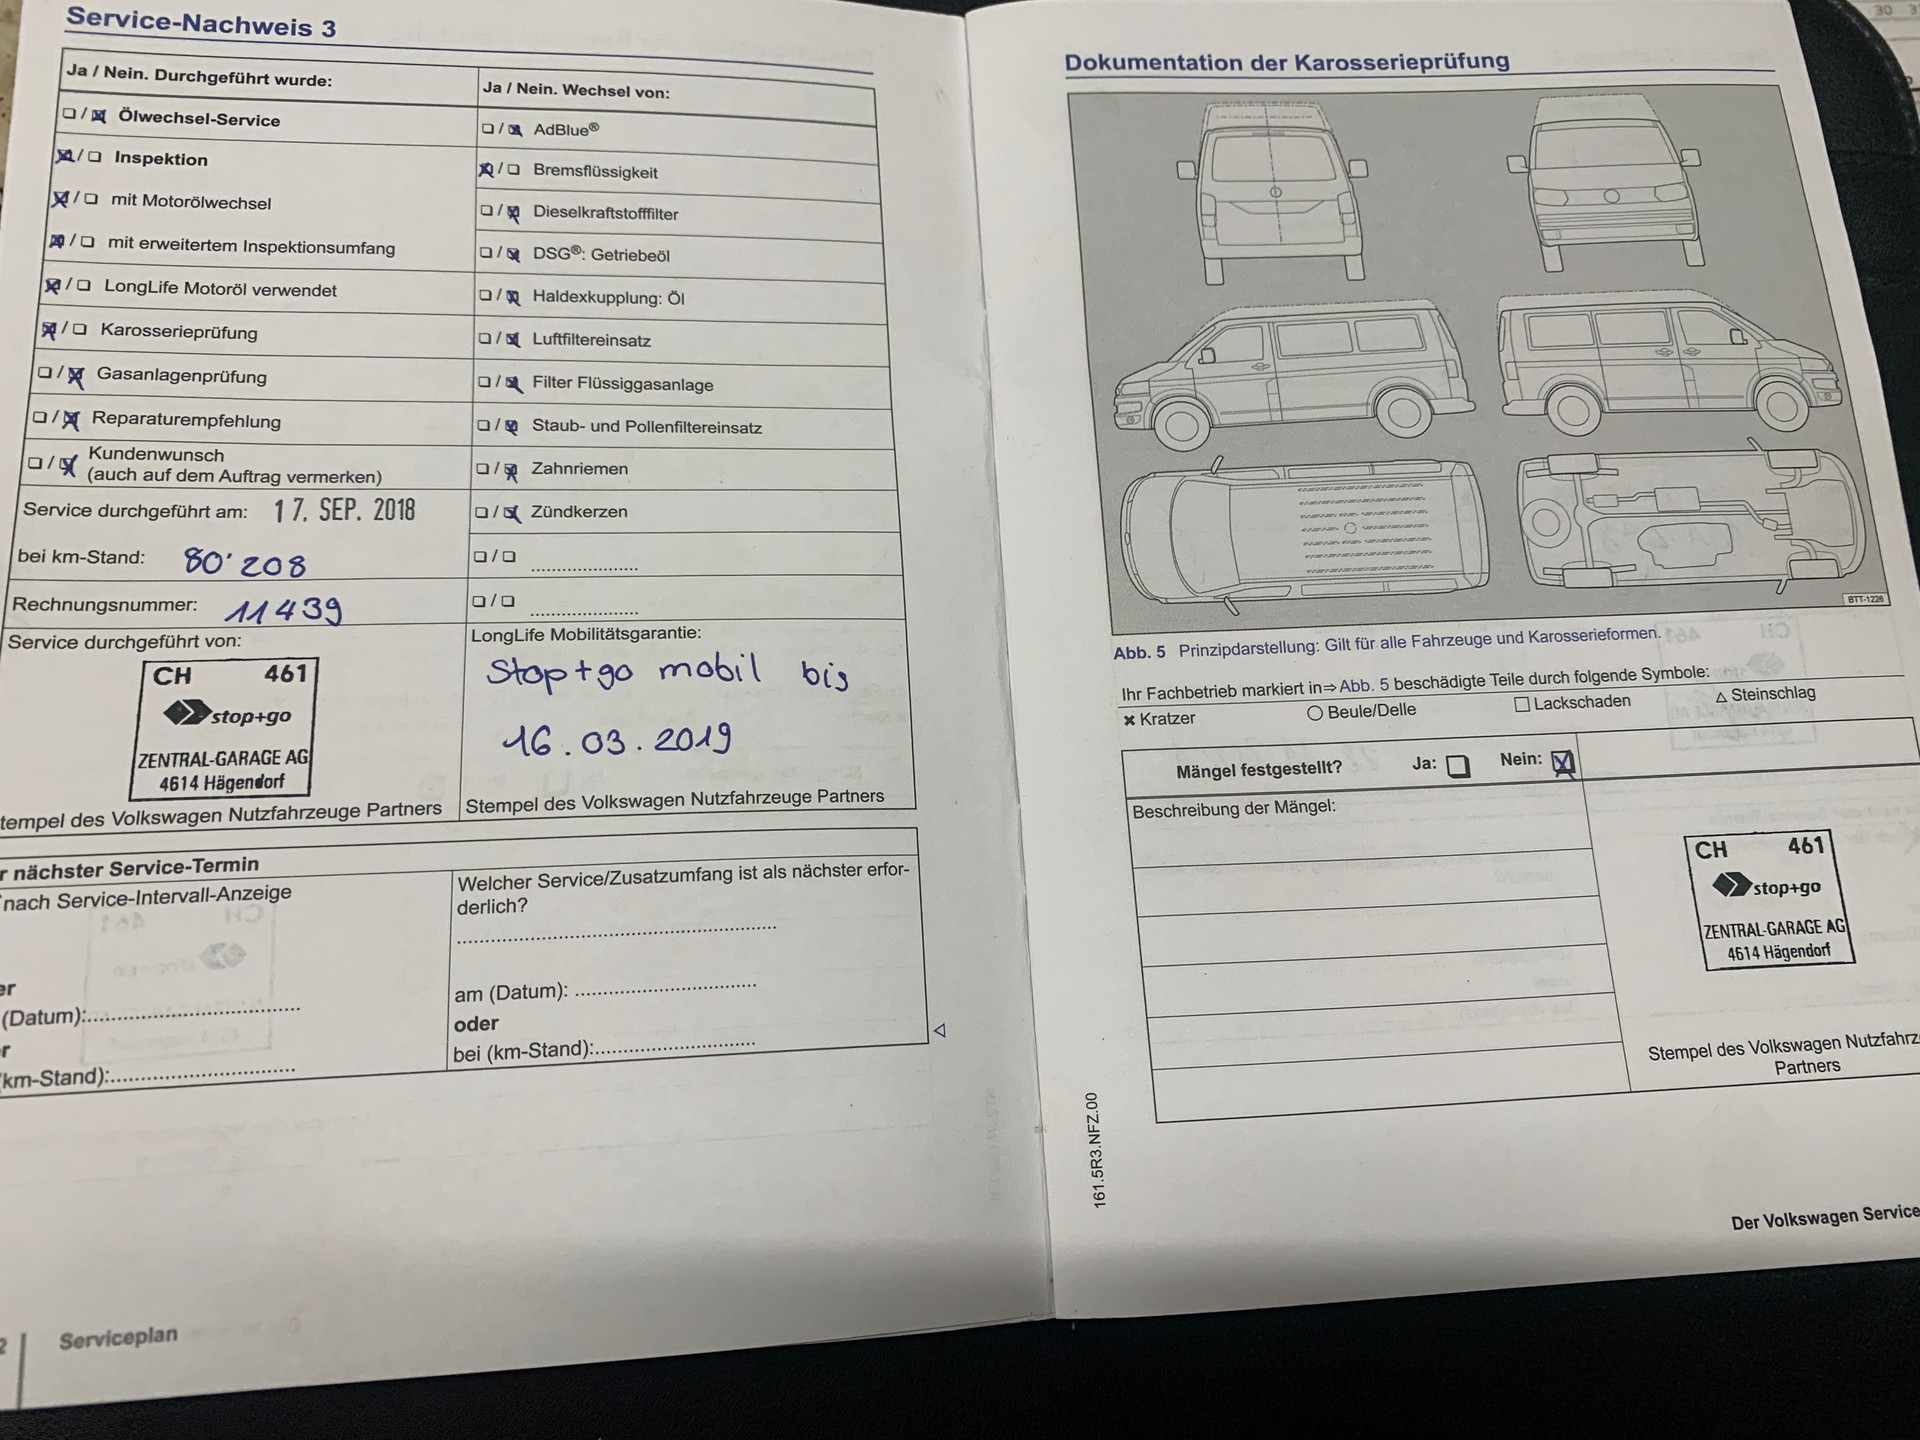 Service-Nachweis 3
Ja / Nein. Durchgeführt wurde:
Ölwechsel-Service
Inspektion
mit Motorölwechsel
mit erweitertem Inspektionsumfang
LongLife Motoröl verwendet
Karosserieprüfung
Gasanlagenprüfung
Reparaturempfehlung
Kundenwunsch
(auch auf dem Auftrag vermerken)
Service durchgeführt am: 17. SEP. 2018
bei km-Stand: 80'208
Rechnungsnummer: 11439
Service durchgeführt von:
CH 461
stop+go
ZENTRAL-GARAGE AG
4614 Hägendorf
tempel des Volkswagen Nutzfahrzeuge Partners
Ja / Nein. Wechsel von:
AdBlue®
Bremsflüssigkeit
Dieselkraftstofffilter
DSG®: Getriebeöl
Haldexkupplung: Öl
Luftfiltereinsatz
Filter Flüssiggasanlage
Staub- und Pollenfiltereinsatz
Zahnriemen
Zündkerzen
LongLife Mobilitätsgarantie:
Stop+go mobil bis
16.03.2019
Stempel des Volkswagen Nutzfahrzeuge Partners
r nächster Service-Termin
nach Service-Intervall-Anzeige
er
(Datum):
r
km-Stand):
Welcher Service/Zusatzumfang ist als nächster erfor-
derlich?
am (Datum):
oder
bei (km-Stand):
2 Serviceplan
Dokumentation der Karosserieprüfung
BTT-1226
Abb. 5 Prinzipdarstellung: Gilt für alle Fahrzeuge und Karosserieformen.
Ihr Fachbetrieb markiert in⇒Abb. 5 beschädigte Teile durch folgende Symbole:
✖ Kratzer ○ Beule/Delle □ Lackschaden △ Steinschlag
Mängel festgestellt? Ja: Nein:
Beschreibung der Mängel:
CH 461
stop+go
ZENTRAL-GARAGE AG
4614 Hägendorf
Stempel des Volkswagen Nutzfahrz
Partners
161.5R3.NFZ.00
Der Volkswagen Service
30 3